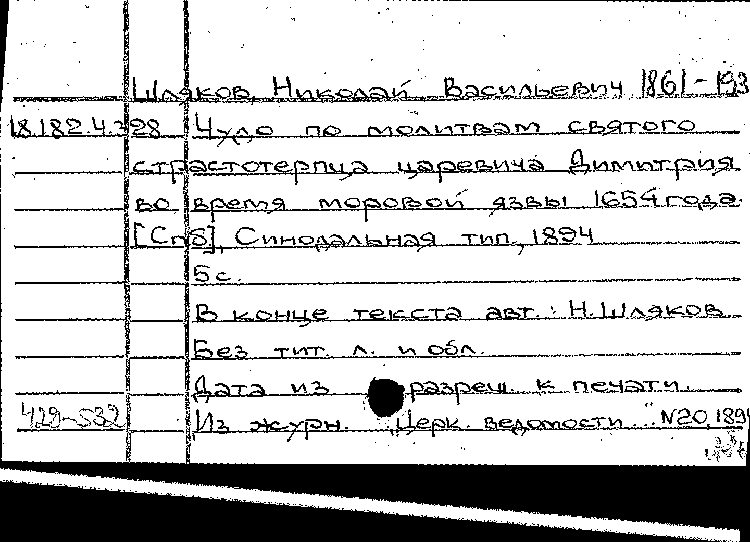 Шляков, Николай Васильевич 1861-193
18.182.4.328 Чудо по молитвам святого
страстотерпца царевича Димитрия
во время моровой язвы 1654 года.
[Спб], Синодальная тип., 1894
5 с.
В конце текста авт.: Н. Шляков
Без тит. л. и обл.
Дата из разреш. к печати.
429-532 Из журн. "Церк. ведомости" N20, 189